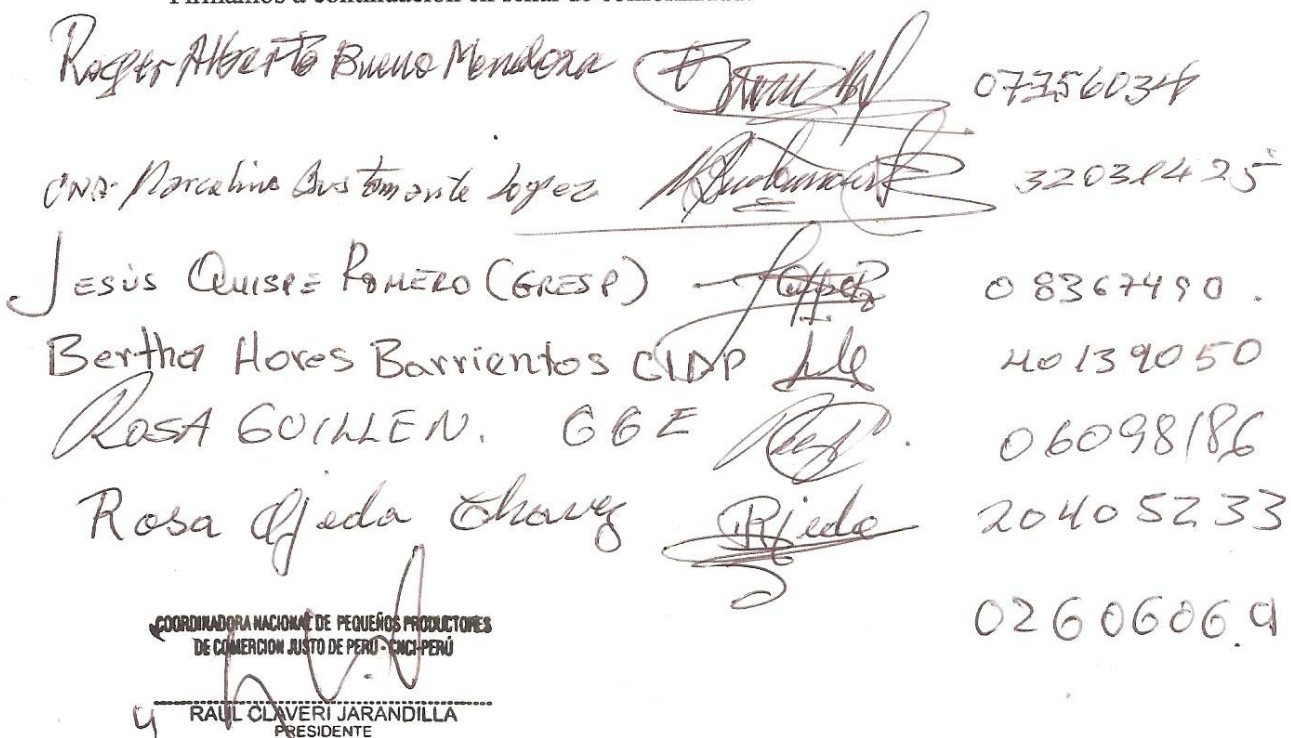 Firmamos a continuación en señal de conformidad.
Roger Alberto Bueno Mendoza 07756034
CNA. Marcelino Bustamante Lopez 32031425
JESÚS QUISPE ROMERO (GRESP) 08367490.
Bertha Flores Barrientos CIAP 40139050
ROSA GUILLEN. GGE 06098186
Rosa Ojeda Chavez ROjeda 20405233
02606069
COORDINADORA NACIONAL DE PEQUEÑOS PRODUCTORES
DE COMERCION JUSTO DE PERÚ - CNCJ-PERÚ
RAUL CLAVERI JARANDILLA
PRESIDENTE